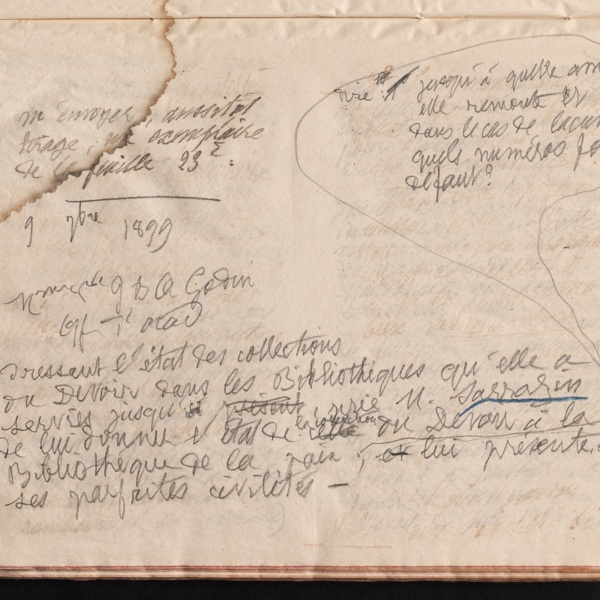 m'envoyer, aussitôt
tirage, un exemplaire
de la feuille 23e.
9 9bre 1899
9 B A Godin
Dressant l'état des collections
du Devoir dans les Bibliothèques qu'elle a
servies jusqu'à présent, prie M. Sarrazin
de lui donner l'état de la collection du Devoir à la
Bibliothèque de la paix, et lui présente
ses parfaites civilités —
dire jusqu'à quelle
elle remonte et
dans le cas de
quels numéros
défaut?